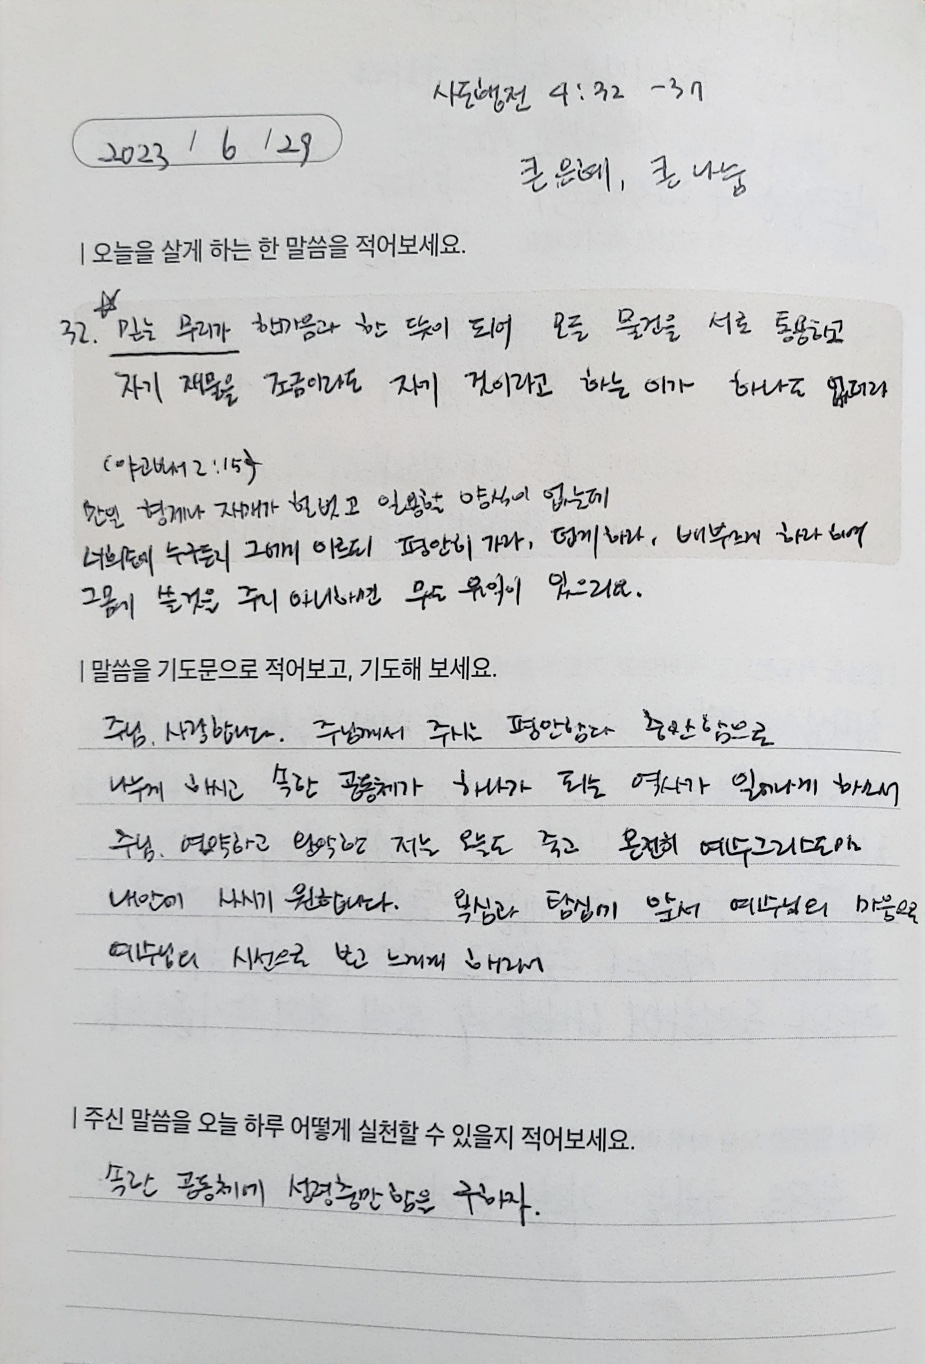 사도행전 4:32 -37
2023 / 6 / 29
큰 은혜, 큰 나눔
| 오늘을 살게 하는 한 말씀을 적어보세요.
32. 믿는 무리가 한마음과 한 뜻이 되어 모든 물건을 서로 통용하고
자기 재물을 조금이라도 자기 것이라고 하는 이가 하나도 없더라
(야고보서 2:15)
만일 형제나 자매가 헐벗고 일용할 양식이 없는데
너희중에 누구든지 그에게 이르되 평안히 가라, 덥게하라, 배부르게 하라 하며
그몸에 쓸것을 주지 아니하면 무슨 유익이 있으리요.
| 말씀을 기도문으로 적어보고, 기도해 보세요.
주님, 사랑합니다. 주님께서 주시는 평안함과 충만함으로
나누게 하시고 속한 공동체가 하나가 되는 역사가 일어나게 하소서
주님. 연약하고 저는 오늘도 죽고 온전히 예수그리스도만
내안에 사시기 원합니다. 욕심과 탐심에 앞서 예수님의 마음으로
예수님의 시선으로 보고 느끼게
| 주신 말씀을 오늘 하루 어떻게 실천할 수 있을지 적어보세요.
속한 공동체에 성령충만함을 구하자.